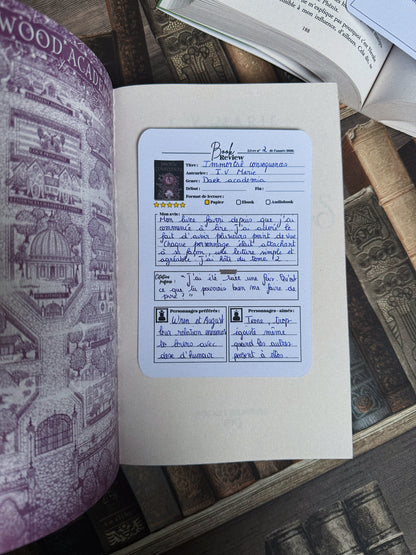 WOOD ACAD
n'explique pas pourquoi c'est
mon influence, d'ailleurs. Cela, tu
188
Book
Review
Livre n° 2 de l'année 2026.
Titre : Immortal consequences
Auteur·ice : I.V Marie
Genre : Dark academia
Début : Fin :
Format de lecture :
Papier Ebook Audiobook
Mon avis :
Mon livre favori depuis que j'ai
commencé à lire j'ai adoré le
fait d'avoir plusieurs point de vue
Chaque personnage était attachant
à sa façon, une lecture simple et
agréable J'ai hâte du tome 2
Citation
"J'ai été tuée une fois. Qu'est
ce que tu pourrais bien me faire de
pire ?"
Personnages préférés :
Wren et August
leur relation ennemies
to lovers avec
dose d'humour
Personnages - aimés :
Irene, trop
égoïste même
quand les autres
pensent à elles